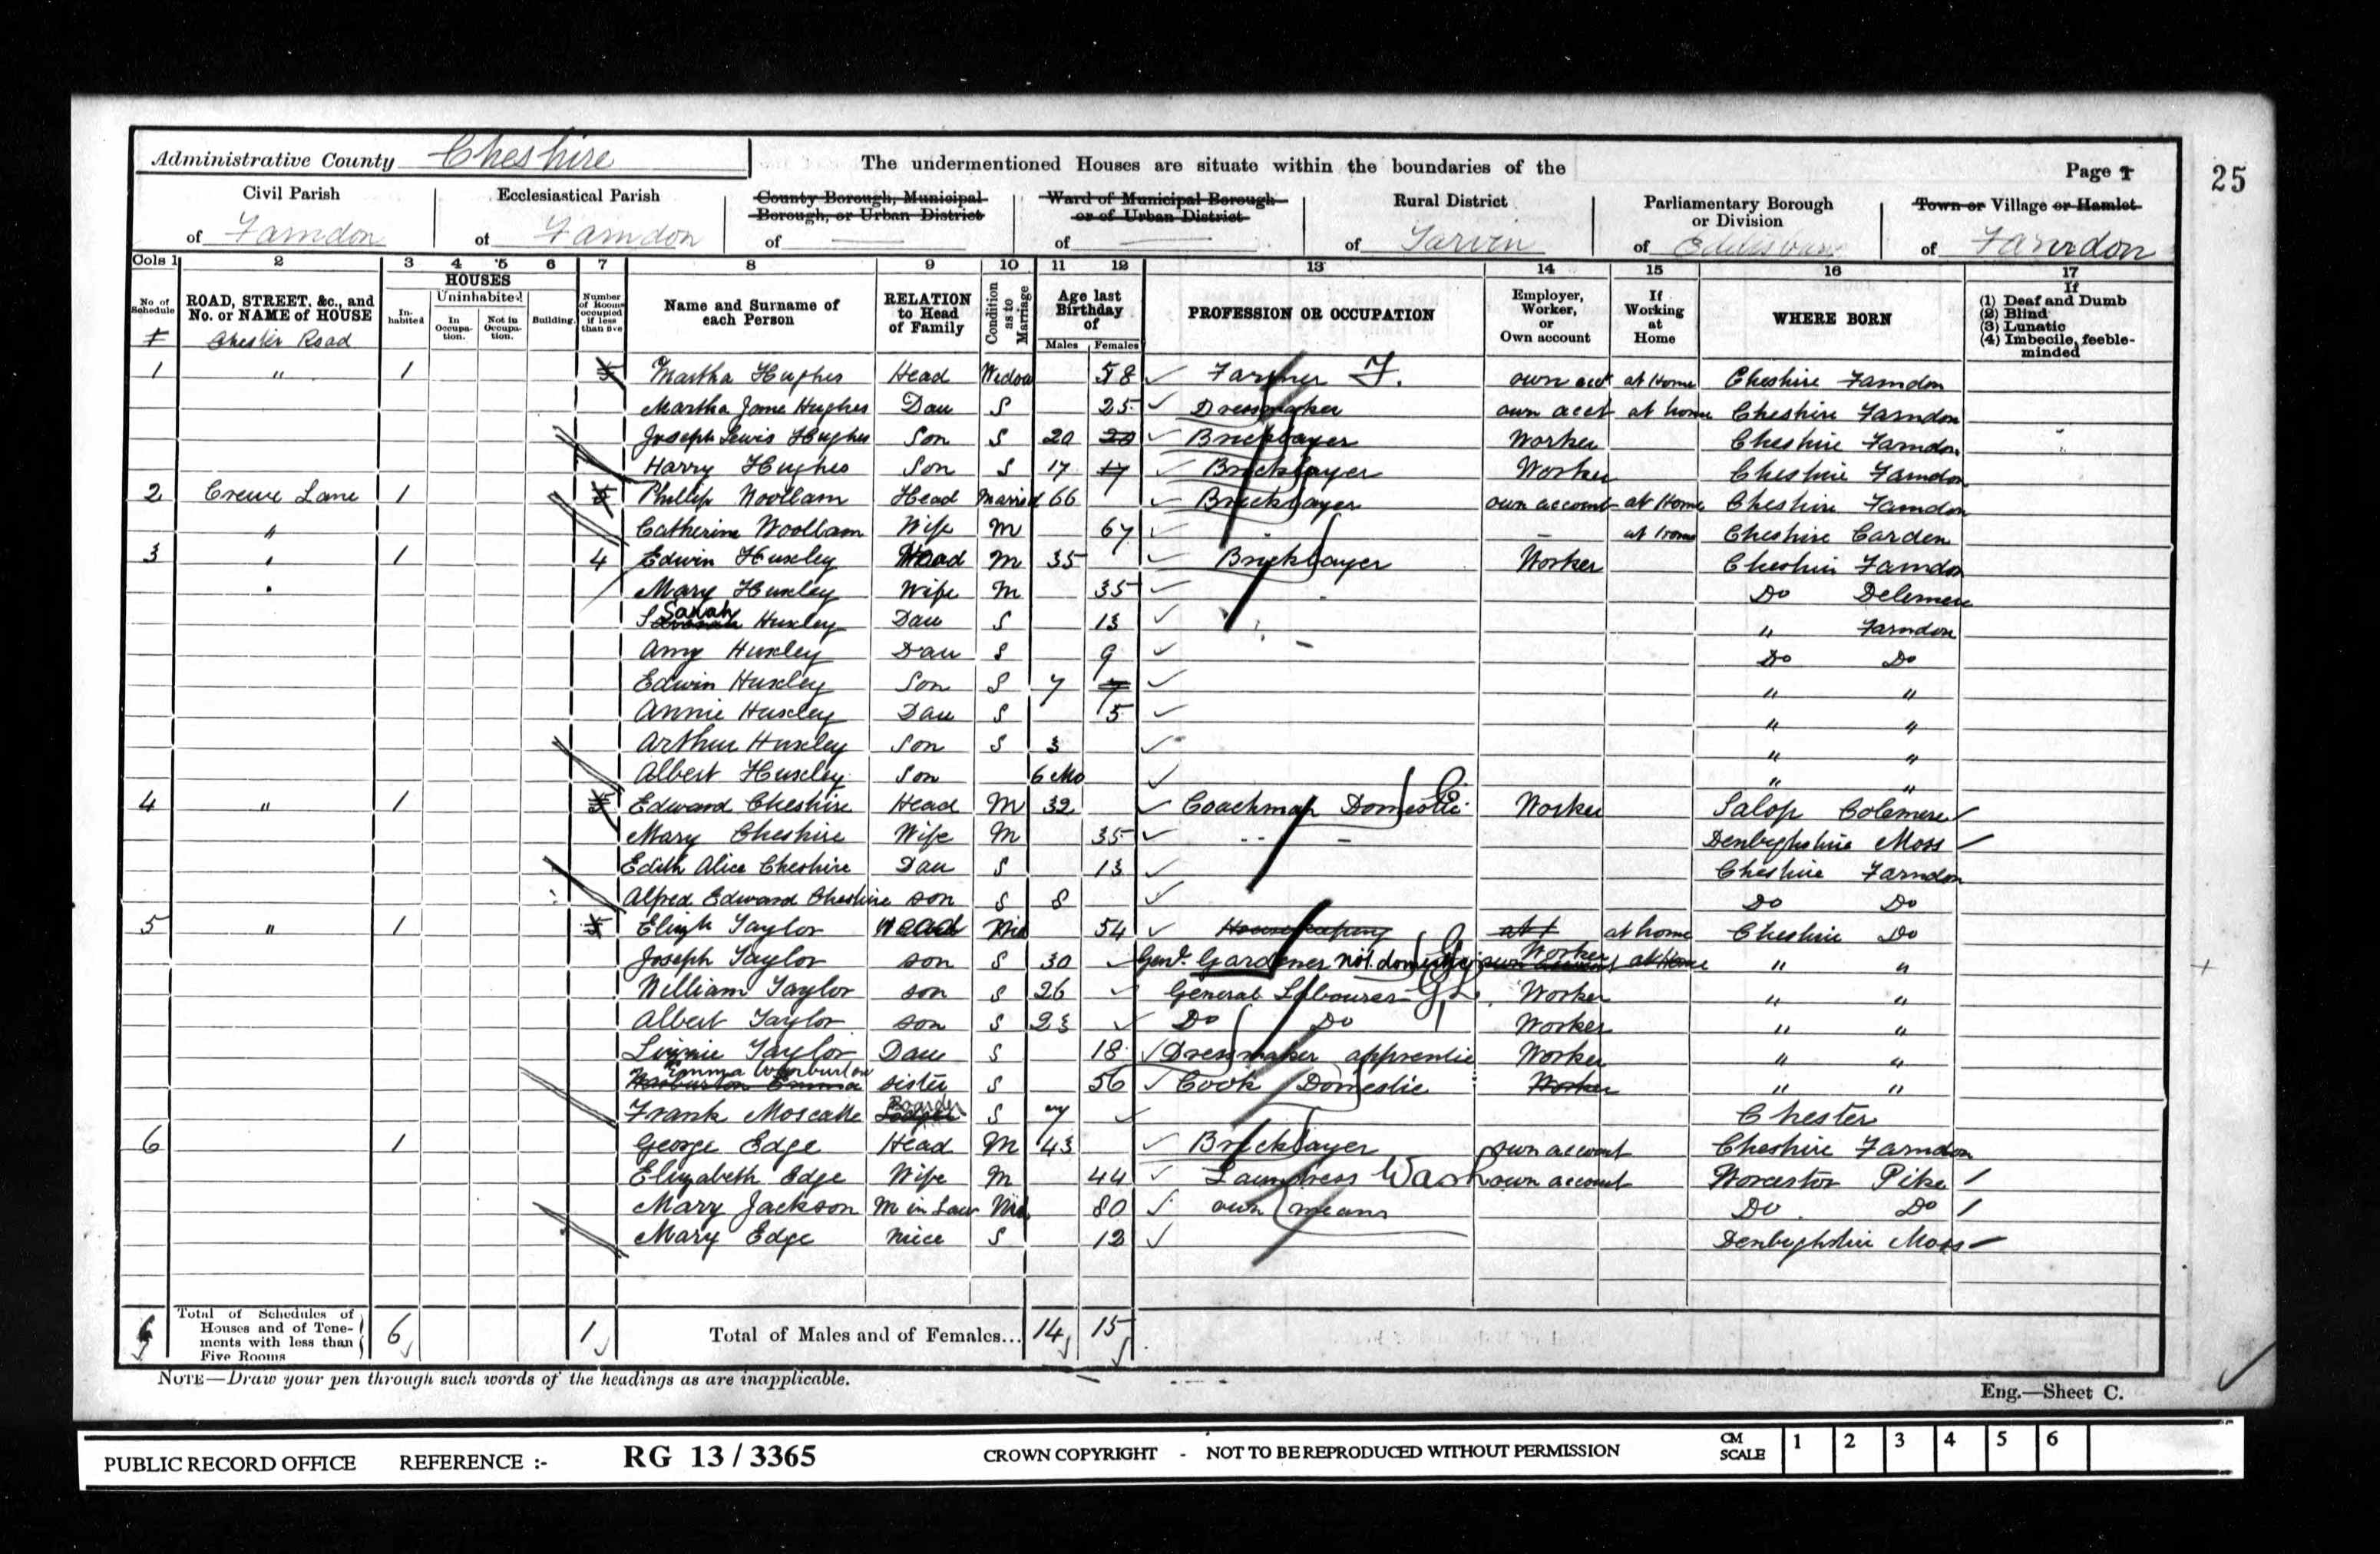 Administrative County Cheshire
The undermentioned Houses are situate within the boundaries of the
Page 1
25
Civil Parish
of Farndon
Ecclesiastical Parish
of Farndon
County Borough, Municipal Borough, or Urban District
of
Ward of Municipal Borough or of Urban District
of
Rural District
of Tarvin
Parliamentary Borough or Division
of Eddisbury
Town or Village or Hamlet
of Farndon
Cols 1 2 3 4 5 6 7 8 9 10 11 12 13 14 15 16 17
No. of Schedule
ROAD, STREET, &c., and No. or NAME of HOUSE
HOUSES
In-habited
Uninhabited
In Occupa-tion.
Not in Occupa-tion.
Building
Number of Rooms occupied if less than five
Name and Surname of each Person
RELATION to Head of Family
Condition as to Marriage
Age last Birthday of
Males Females
PROFESSION OR OCCUPATION
Employer, Worker, or Own account
If Working at Home
WHERE BORN
If
(1) Deaf and Dumb
(2) Blind
(3) Lunatic
(4) Imbecile, feeble-minded
Chester Road
1 " 1 5 Martha Hughes Head Widow 58 Farmer F. own acct at Home Cheshire Farndon
Martha Jane Hughes Dau S 25 Dressmaker own acct at home Cheshire Farndon
Joseph Lewis Hughes Son S 20 20 Bricklayer Worker Cheshire Farndon
Harry Hughes Son S 17 17 Bricklayer Worker Cheshire Farndon
2 Crewe Lane 1 5 Phillip Woollam Head Married 66 Bricklayer own account at Home Cheshire Farndon
" Catherine Woollam Wife M 67 at Home Cheshire Carden
3 " 1 4 Edwin Huxley Head M 35 Bricklayer Worker Cheshire Farndon
" Mary Huxley Wife M 35 Do Delemere
Sarah Huxley Dau S 13 " Farndon
Amy Huxley Dau S 9 Do Do
Edwin Huxley Son S 7 7 " "
Annie Huxley Dau S 5 " "
Arthur Huxley Son S 3 " "
Albert Huxley Son 6 Mo " "
4 " 1 5 Edward Cheshire Head M 32 Coachman Domestic Worker Salop Colemere
Mary Cheshire Wife M 35 Denbighshire Moss
Edith Alice Cheshire Dau S 13 Cheshire Farndon
Alfred Edward Cheshire son S 8 Do Do
5 " 1 5 Elizh Taylor Head Wid 54 Housekeeping at home Cheshire Do
Joseph Taylor son S 30 Genl. Gardener not domestic own account Worker at Home " "
William Taylor son S 26 General Labourer G.L. Worker " "
Albert Taylor son S 23 Do Do Worker " "
Linnie Taylor Dau S 18 Dressmaker apprentice Worker " "
Warburton Emma Emma Warburton sister S 56 Cook Domestic Worker " "
Frank Lodger Boarder S 7 Chester
6 1 George Edge Head M 43 Bricklayer own account Cheshire Farndon
Elizabeth Edge Wife M 44 Laundress Wash own account Worcester Pike
Mary Jackson M in Law Wid 80 own means Do Do
Mary Edge niece S 12 Denbighshire Moss
6 Total of Schedules of Houses and of Tene-ments with less than Five Rooms 6 1 Total of Males and of Females... 14 15
NOTE—Draw your pen through such words of the headings as are inapplicable.
Eng.—Sheet C.
PUBLIC RECORD OFFICE REFERENCE :- RG 13 / 3365 CROWN COPYRIGHT - NOT TO BE REPRODUCED WITHOUT PERMISSION CM SCALE 1 2 3 4 5 6